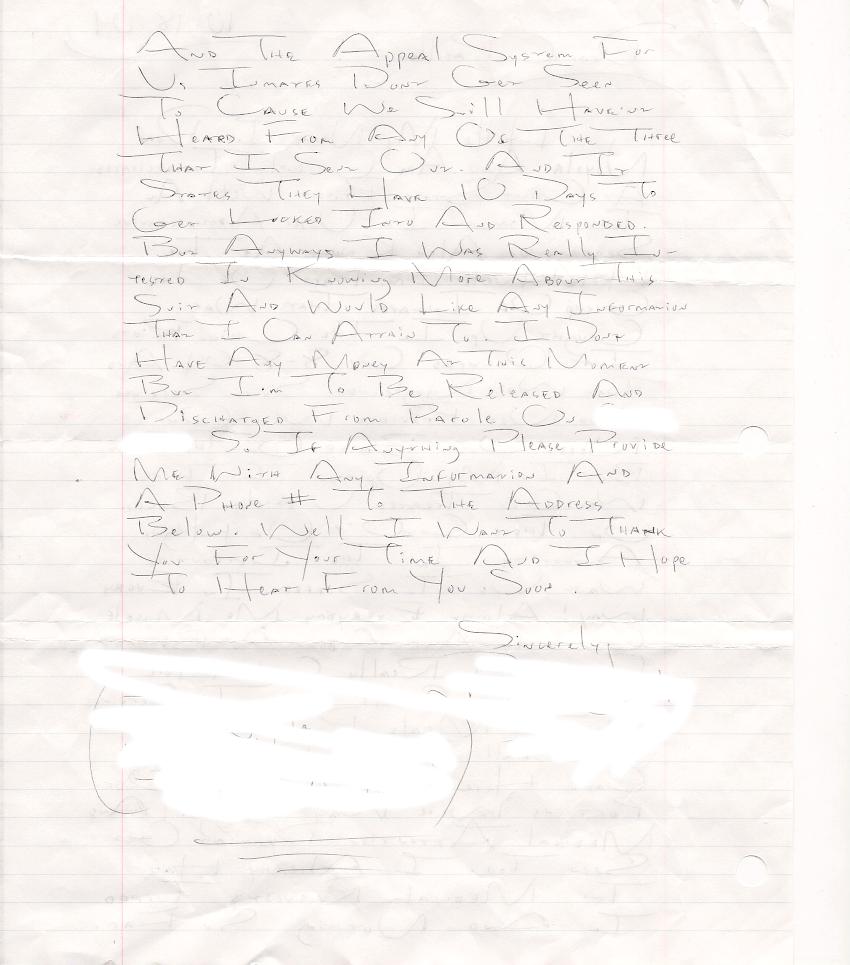 And The Appeal System For
Us Inmates Dont Get Seen
To Cause We Still Have'nt
Heard From Any Of The Three
That I Sent Out. And It
States They Have 10 Days To
Get Looked Into And Responded.
But Anyways I Was Really In-
tested In Knowing More About This
Suit And Would Like Any Information
That I Can Attain To. I Dont
Have Any Money At This Moment
But I'm To Be Released And
Discharged From Parole On
So If Anything Please Provide
Me With Any Information And
A Phone # To The Address
Below. Well I Want To Thank
You For Your Time And I Hope
To Hear From You Soon.
Sincerely,